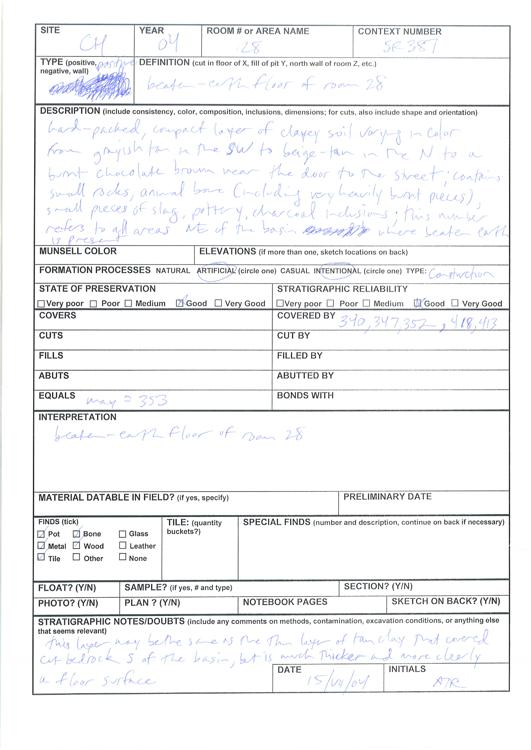 SITE CH
YEAR 04
ROOM # or AREA NAME 28
CONTEXT NUMBER SR 387
TYPE (positive, negative, wall) positive
DEFINITION (cut in floor of X, fill of pit Y, north wall of room Z, etc.)
beaten-earth floor of room 28
DESCRIPTION (include consistency, color, composition, inclusions, dimensions; for cuts, also include shape and orientation)
hard-packed, compact layer of clayey soil varying in color
from grayish tan in the SW to beige-tan in the N to a
burnt chocolate brown near the door to the street; contains
small rocks, animal bone (including very heavily burnt pieces),
small pieces of slag, pottery, charcoal inclusions; this number
refers to all areas NE of the basin where beaten earth
is present
MUNSELL COLOR
ELEVATIONS (if more than one, sketch locations on back)
FORMATION PROCESSES NATURAL ARTIFICIAL (circle one) CASUAL INTENTIONAL (circle one) TYPE: Construction
STATE OF PRESERVATION
Very poor Poor Medium Good Very Good
STRATIGRAPHIC RELIABILITY
Very poor Poor Medium Good Very Good
COVERS
COVERED BY 340, 347, 352, 418, 413
CUTS
CUT BY
FILLS
FILLED BY
ABUTS
ABUTTED BY
EQUALS may = 353
BONDS WITH
INTERPRETATION
beaten-earth floor of room 28
MATERIAL DATABLE IN FIELD? (if yes, specify)
PRELIMINARY DATE
FINDS (tick)
Pot Bone Glass
Metal Wood Leather
Tile Other None
TILE: (quantity buckets?)
SPECIAL FINDS (number and description, continue on back if necessary)
FLOAT? (Y/N)
SAMPLE? (if yes, # and type)
SECTION? (Y/N)
PHOTO? (Y/N)
PLAN ? (Y/N)
NOTEBOOK PAGES
SKETCH ON BACK? (Y/N)
STRATIGRAPHIC NOTES/DOUBTS (include any comments on methods, contamination, excavation conditions, or anything else that seems relevant)
This layer may be the same as the thin layer of tan clay that covered
cut bedrock S of the basin, but is much thicker and more clearly
a floor surface
DATE 15/VII/04
INITIALS